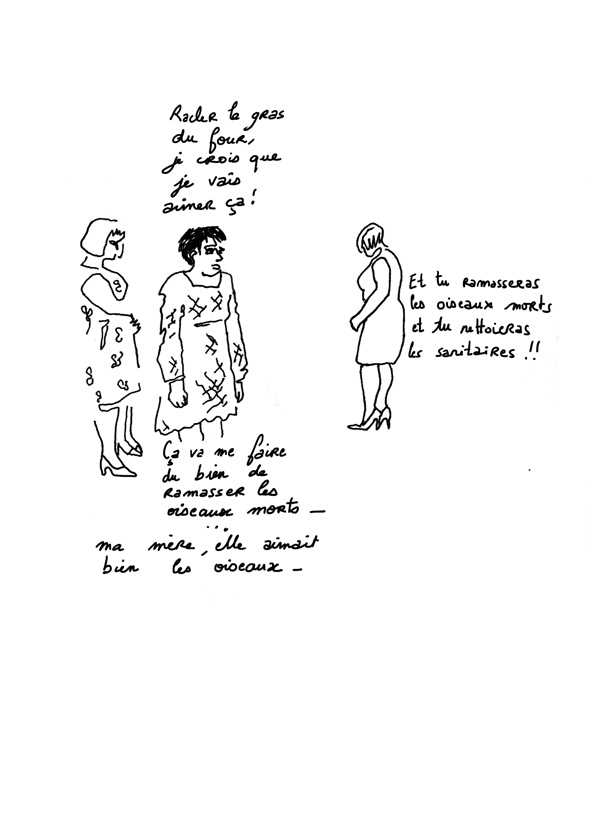 Racler le gras
du four,
je crois que
je vais
aimer ça !
Et tu ramasseras
les oiseaux morts
et tu nettoieras
les sanitaires !!
Ça va me faire
du bien de
ramasser les
oiseaux morts –
...
ma mère, elle aimait
bien les oiseaux –